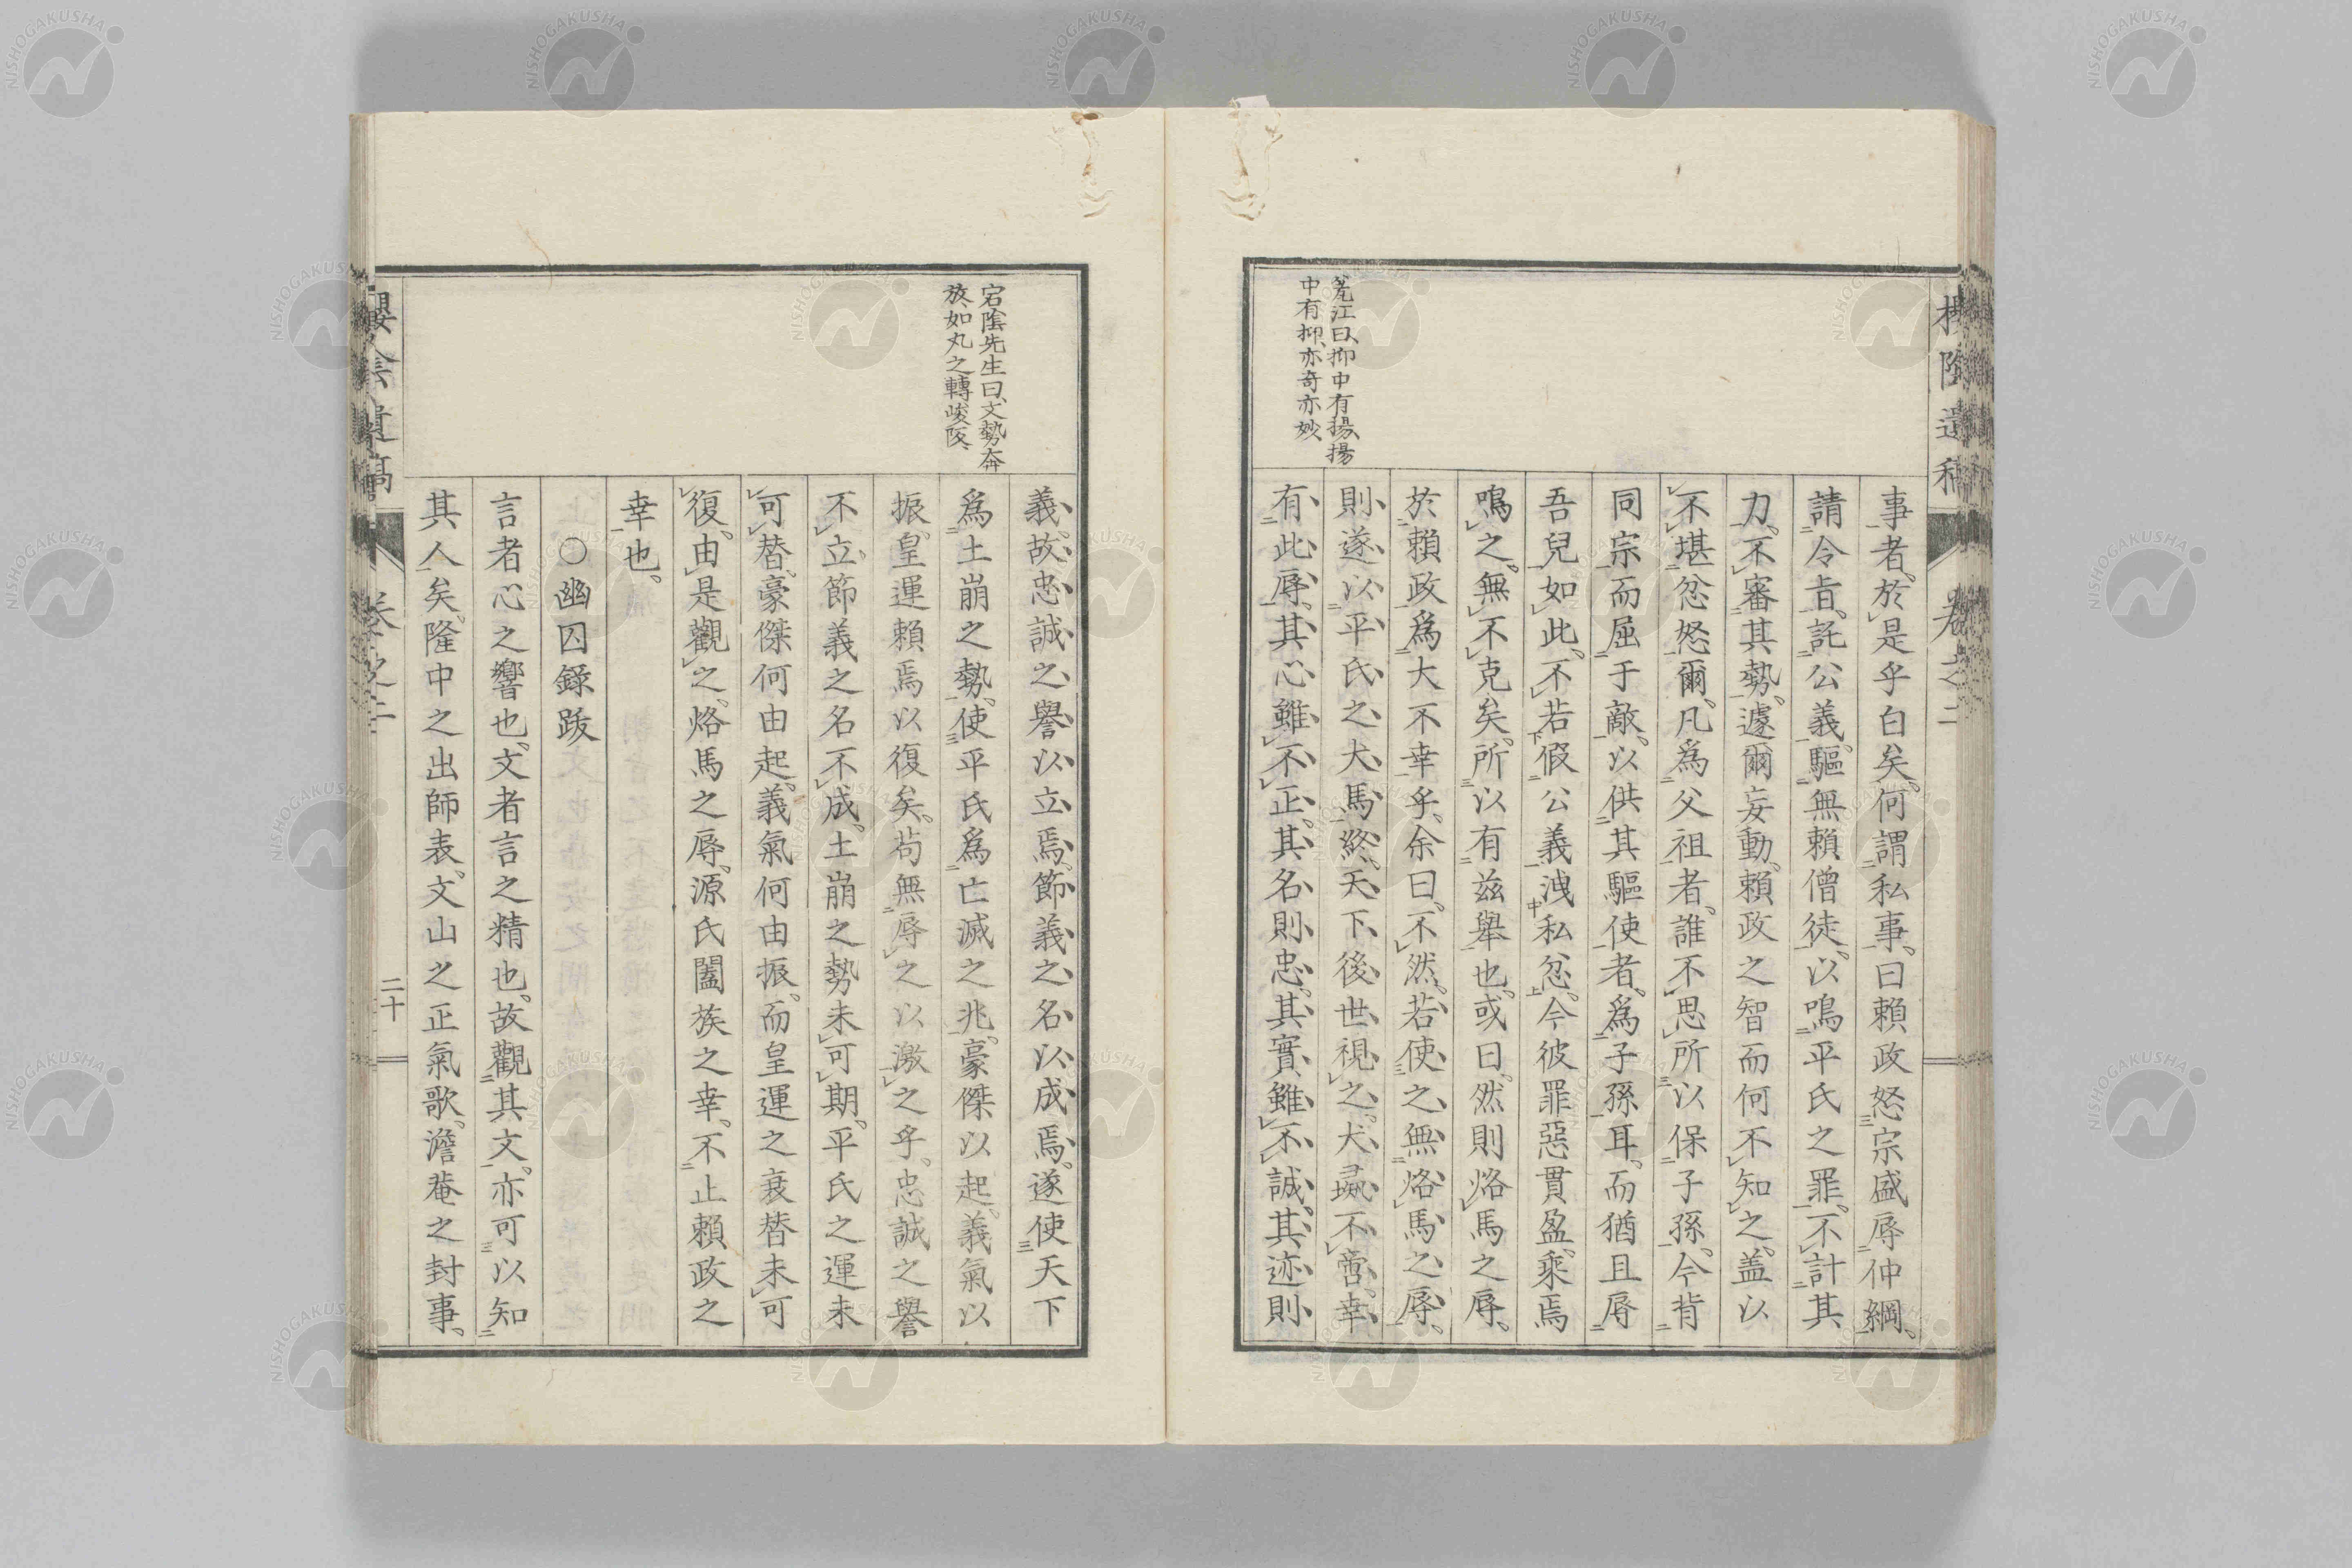 事者於是乎白矣何謂私事曰賴政怒宗盛辱仲綱
請令旨託公義驅無賴僧徒以鳴平氏之罪不計其
力不審其勢遽爾妄動賴政之智而何不知之盖以
不堪忿怒爾凡爲父祖者誰不思所以保子孫今背
同宗而屈于敵以供其驅使者爲子孫耳而猶且辱
吾兒如此不若假公義洩私忿今彼罪惡貫盈乘焉
鳴之無不克矣所以有茲舉也或曰然則烙馬之辱
於賴政爲大不幸乎余曰不然若使之無烙馬之辱
則遂以平氏之犬馬終天下後世視之犬彘不啻幸
有此辱其心雖不正其名則忠其實雖不誠其迹則
毅江曰抑中有揚揚
中有抑亦奇亦妙
卷之二
義故忠誠之譽以立焉節義之名以成焉遂使天下
爲土崩之勢使平氏爲亡滅之兆豪傑以起義氣以
振皇運賴焉以復矣苟無辱之以激之乎忠誠之譽
不立節義之名不成土崩之勢未可期平氏之運未
可替豪傑何由起義氣何由振而皇運之衰替未可
復由是觀之烙馬之辱源氏闔族之幸不止賴政之
幸也
○幽囚錄跋
言者心之響也文者言之精也故觀其文亦可以知
其人矣隆中之出師表文山之正氣歌澹菴之封事
宕陰先生曰文勢奔
放如丸之轉峻阪
二十